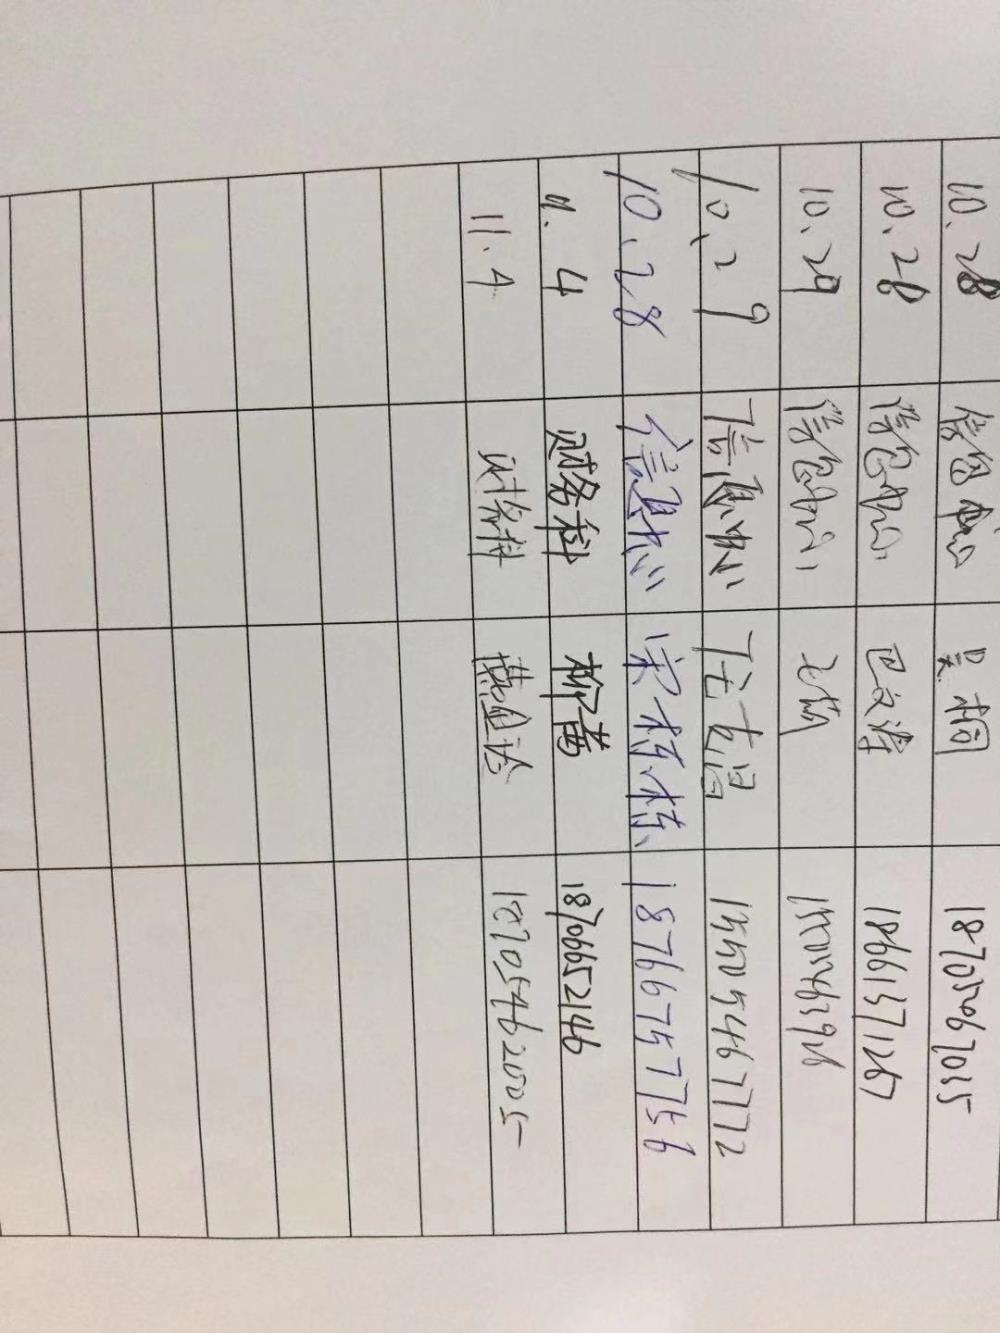 10.28 信息中心 吴桐 18705467015
10.28 信息中心 巴文洋 18661371267
10.29 信息中心
10.29 信息中心 15505467772
10.28 信息中心 宋栋栋 18766757756
11.4 财务科 柳苗 18706652146
11.4 财务科 18705462005